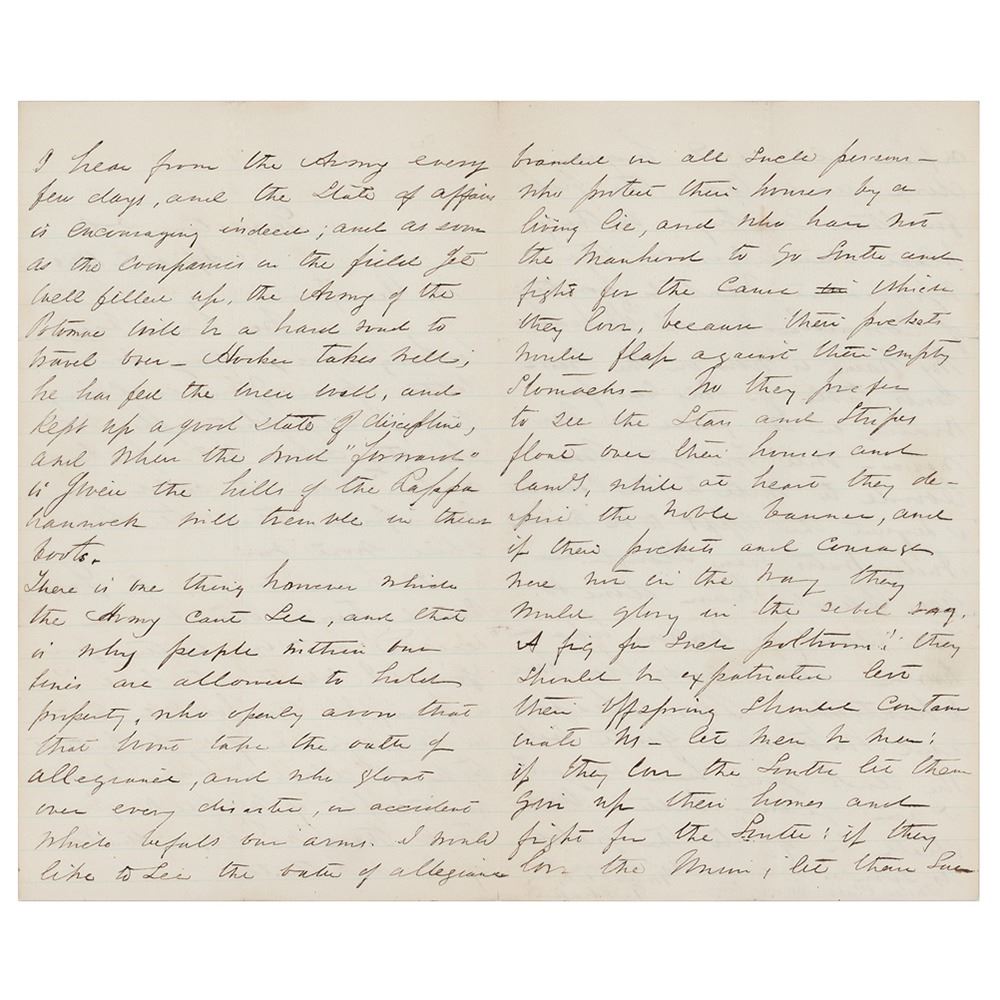 I hear from the Army every
few days, and the State of affairs
is encouraging indeed; and as soon
as the companies in the field get
well filled up, the Army of the
Potomac will be a hard road to
travel over – Hooker takes well;
he has fed the men well, and
kept up a good state of discipline,
and when the word "forward"
is given the hills of the Rappa
hannock will tremble in their
boots.
There is one thing however which
the Army cant see, and that
is why people within our
lines are allowed to hold
property, who openly avow that
that wont take the oath of
allegiance, and who gloat
over every disaster, or accident
which befals our arms. I would
like to see the oath of allegiance
branded on all such persons –
who protect their houses by a
living lie, and who have not
the manhood to go South and
fight for the cause which
they love, because their pockets
would flap against their empty
stomachs – No they prefer
to see the Stars and Stripes
float over their houses and
lands, while at heart they de-
spise the noble banner, and
if their pockets and courage
were not in the way they
would glory in the rebel rag.
A fig for such poltroons! they
should be expatriated lest
their offspring should contam
inate us – let men be men;
if they love the South let them
give up their homes and
fight for the South; if they
love the Union, let them